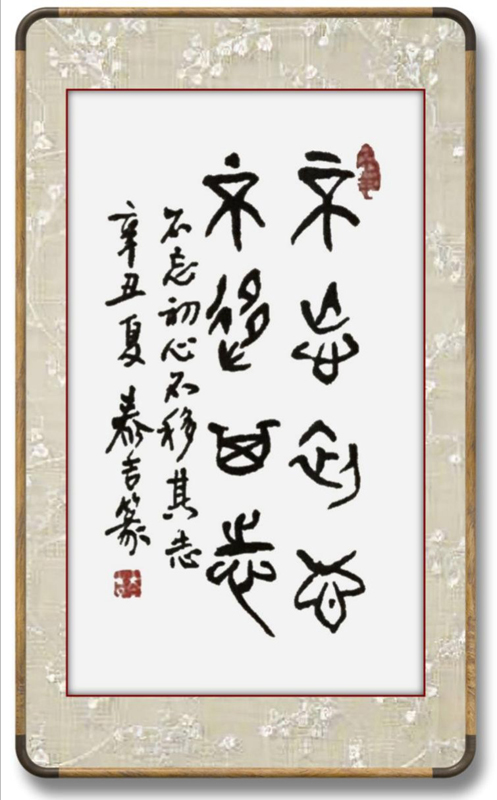 不忘初心
不移其志
不忘初心不移其志
辛丑夏 泰吉篆